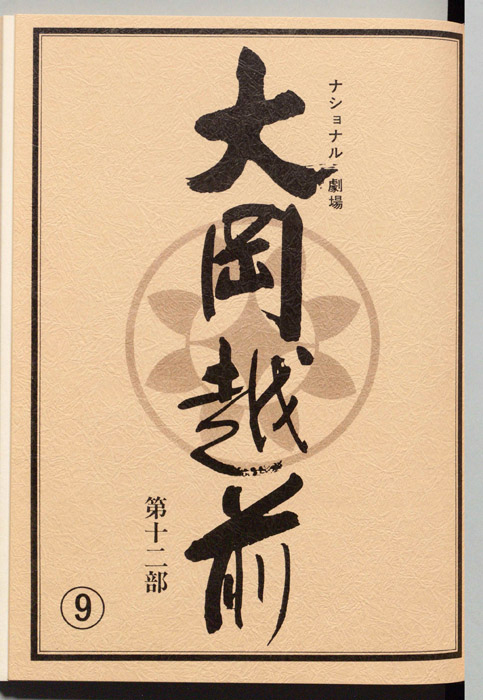 ナショナル劇場
大岡越前
第十二部
9